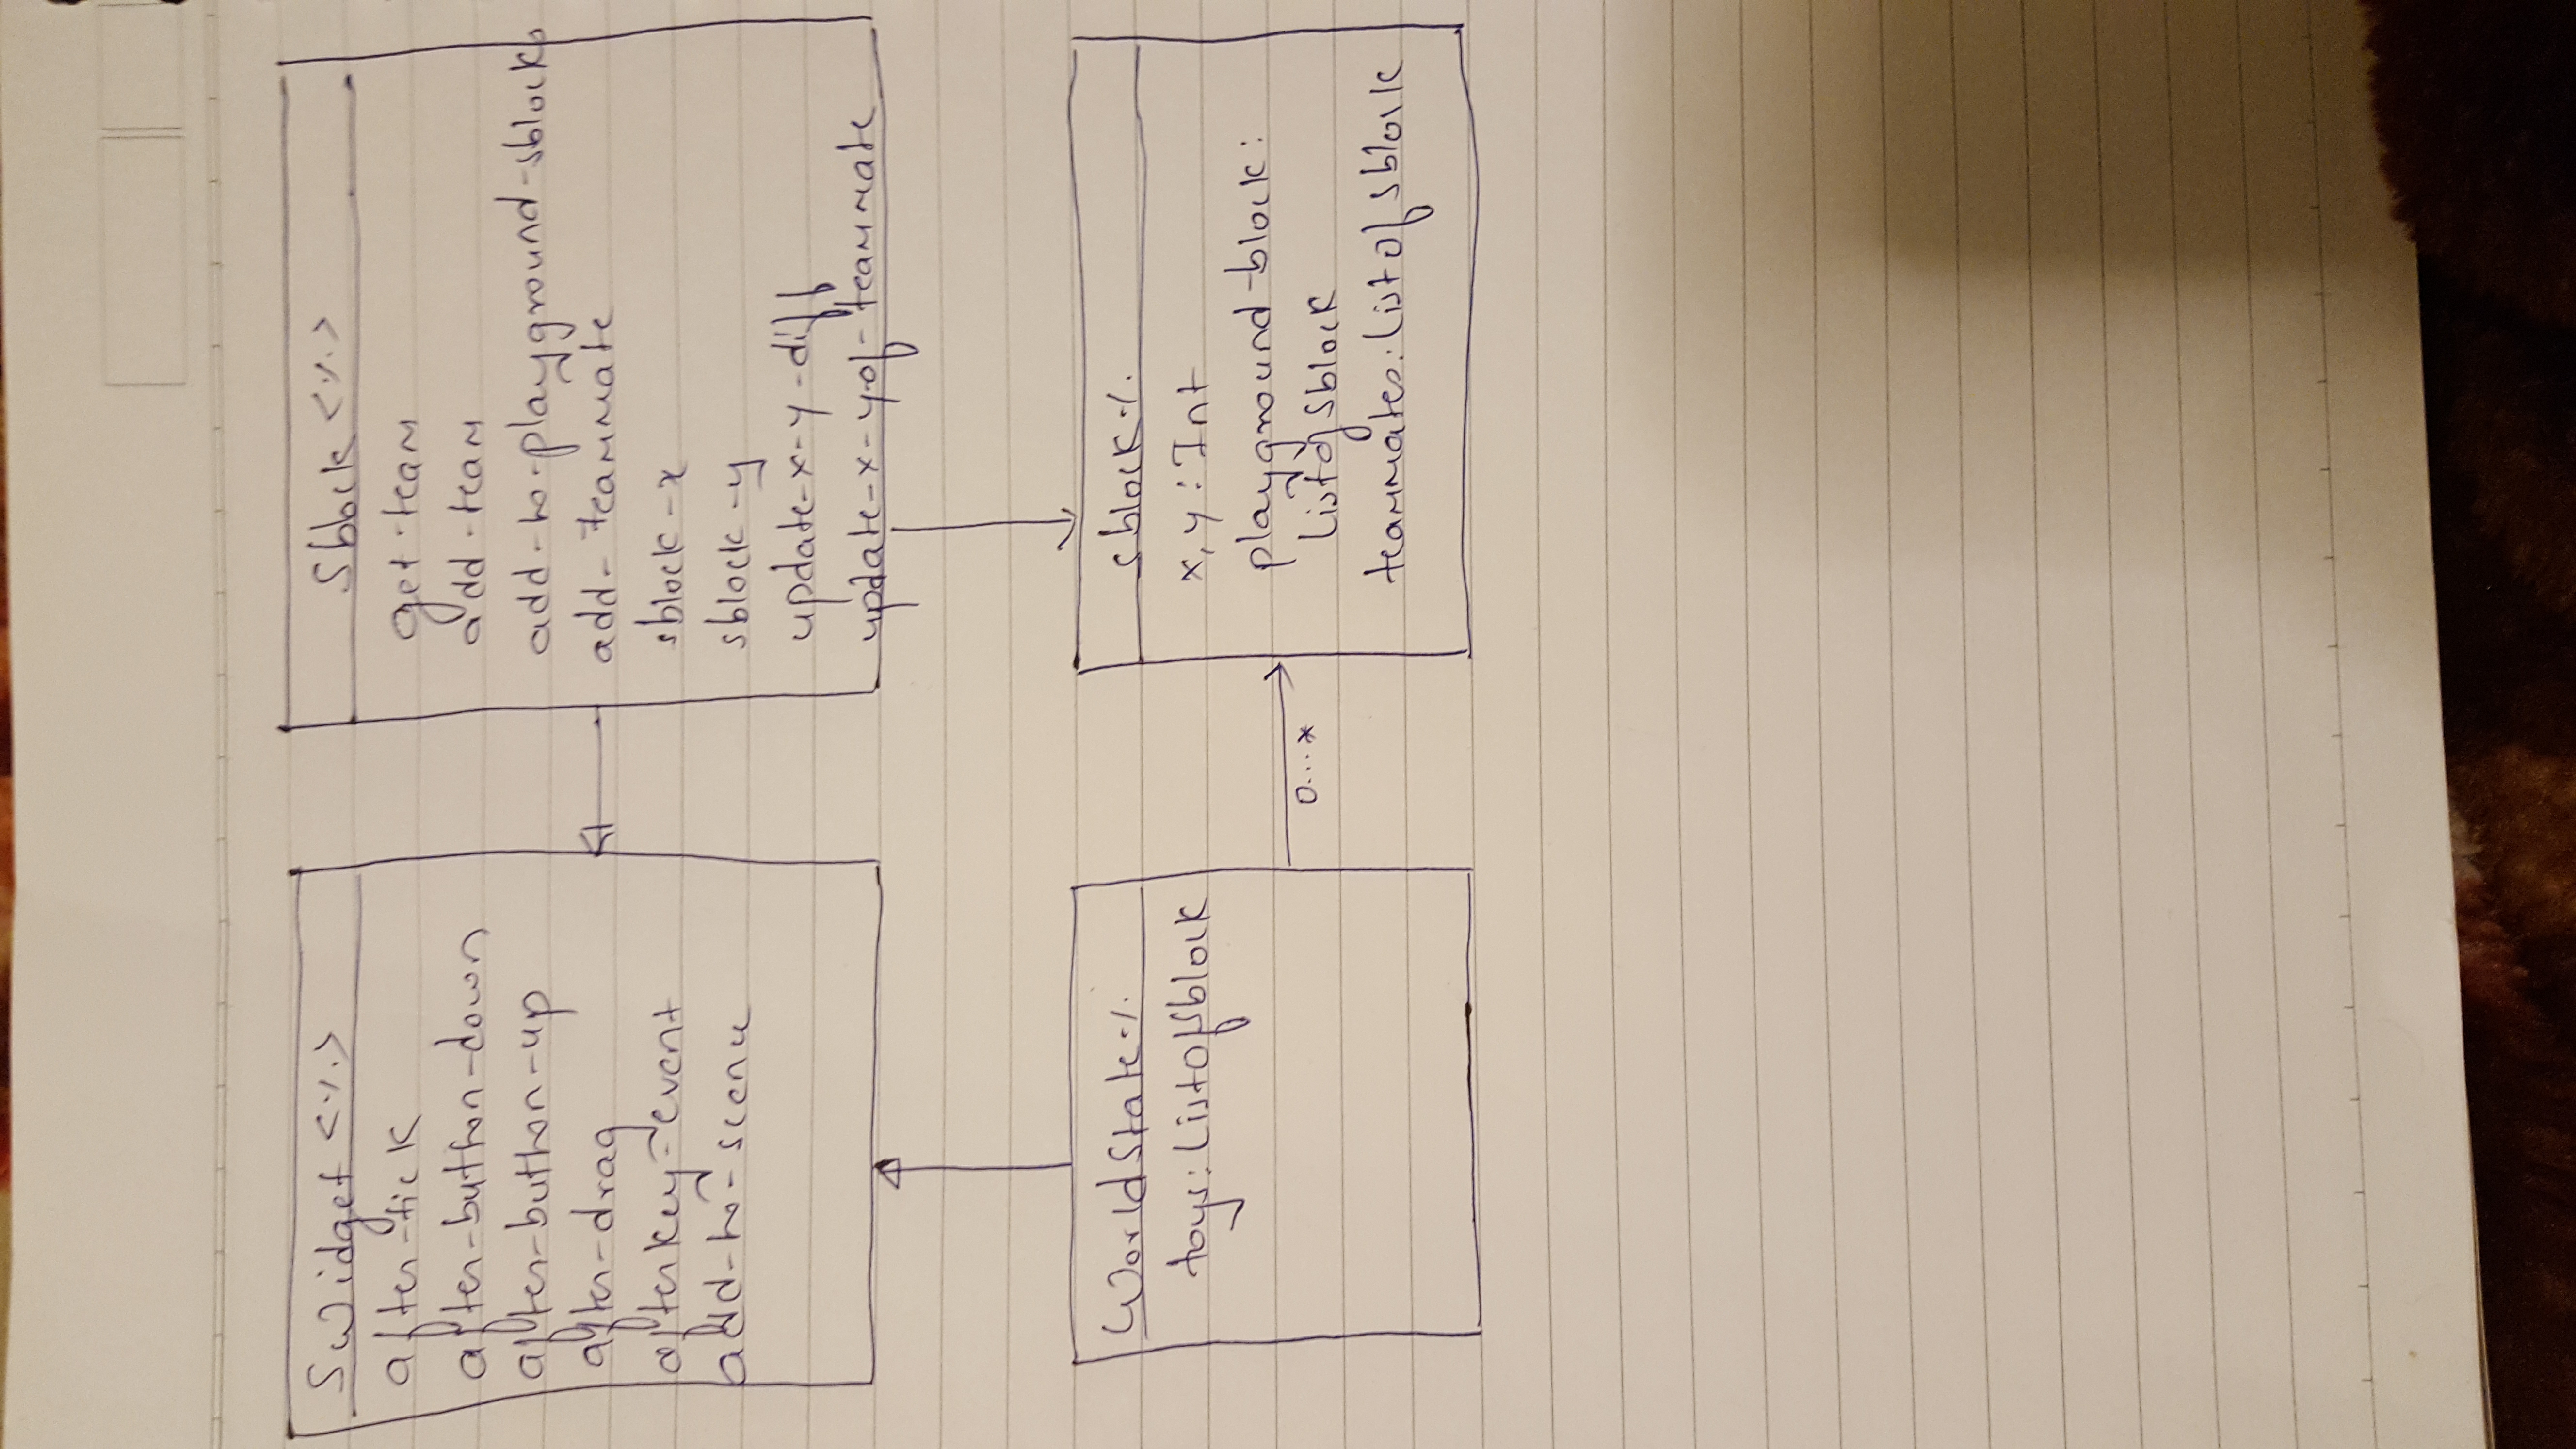 SWidget <%>
after-tick
after-button-down
after-button-up
after-drag
after key-event
add-to-scene
Sblock <%>
get-team
add-team
add-to-playground-sblocks
add-teammate
sblock-x
sblock-y
update-x-y-diff
update-x-y-of-teammate
WorldState%
toys: ListOfSblock
0...*
sblock%
x, y : Int
playground-block:
ListofSblock
teammates: ListOfSblock